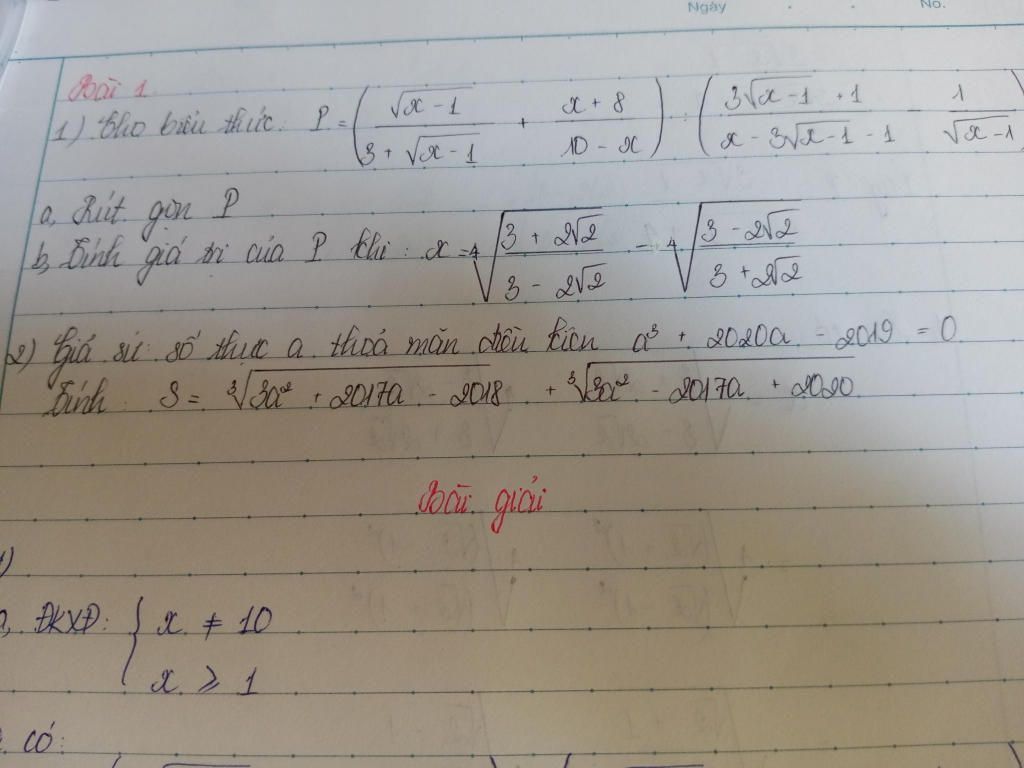 Ngày No.
Bài 1
1) Cho biểu thức: P = ( √(x - 1) / (3 + √(x - 1)) + (x + 8) / (10 - x) ) : ( (3√(x - 1) + 1) / (x - 3√(x - 1) - 1) - 1 / √(x - 1) )
a, Rút gọn P
b, Tính giá trị của P khi: x = ⁴√((3 + 2√2) / (3 - 2√2)) - ⁴√((3 - 2√2) / (3 + 2√2))
2) Giả sử số thực a thoả mãn điều kiện a³ + 2020a - 2019 = 0
Tính: S = ³√(3a² + 2017a - 2018) + ³√(3a² - 2017a + 2020)
Bài giải
a, ĐKXĐ: { x ≠ 10
x ≥ 1
có: